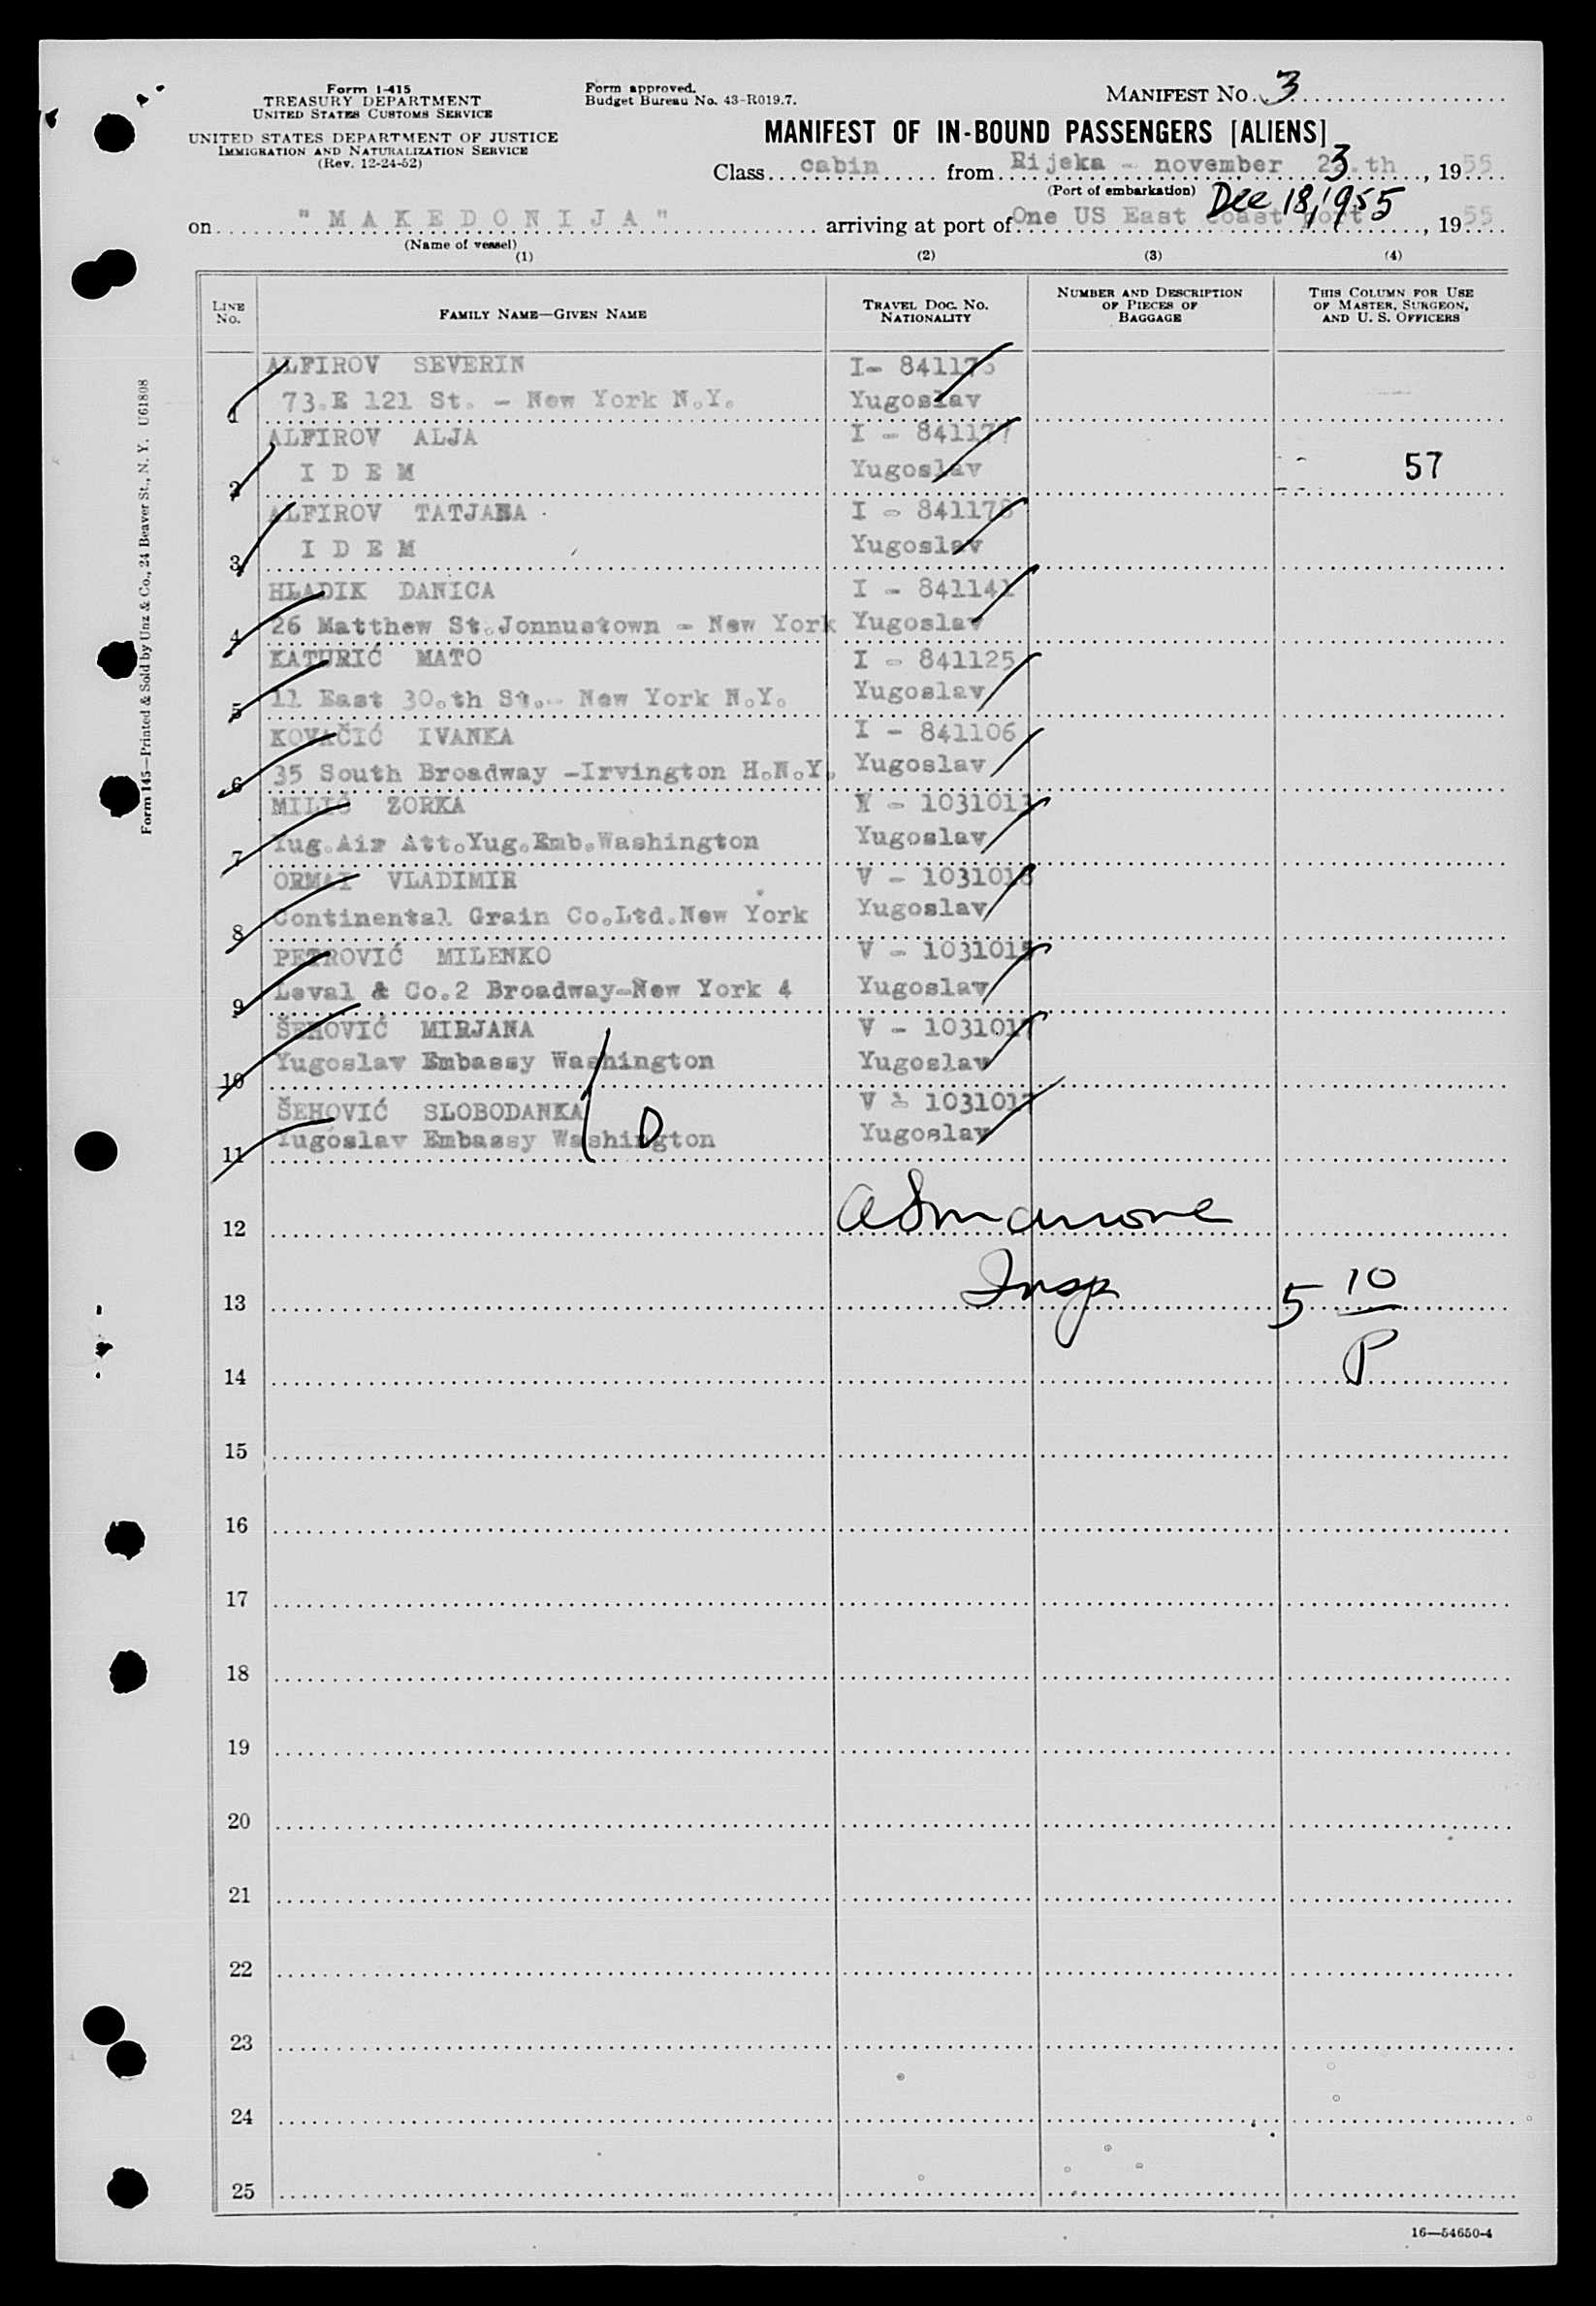 Form I-415
TREASURY DEPARTMENT
UNITED STATES CUSTOMS SERVICE
UNITED STATES DEPARTMENT OF JUSTICE
IMMIGRATION AND NATURALIZATION SERVICE
(Rev. 12-24-52)
Form approved.
Budget Bureau No. 43-R019.7.
MANIFEST No. 3
MANIFEST OF IN-BOUND PASSENGERS [ALIENS]
Class cabin from Rijeka - november 23.th, 1955
(Port of embarkation) Dec 18, 1955
on "MAKEDONIJA" arriving at port of One US East coast port, 1955
(Name of vessel)
(1) (2) (3) (4)
LINE No. FAMILY NAME—GIVEN NAME TRAVEL DOC. NO. NATIONALITY NUMBER AND DESCRIPTION OF PIECES OF BAGGAGE THIS COLUMN FOR USE OF MASTER, SURGEON, AND U. S. OFFICERS
ALFIROV SEVERIN I- 841175
1 73.E 121 St. - New York N.Y. Yugoslav
ALFIROV ALJA I - 841177
2 I D E M Yugoslav 57
ALFIROV TATJANA I - 841178
3 I D E M Yugoslav
HLADIK DANICA I - 841141
4 26 Matthew St.Jonnustown - New York Yugoslav
KATURIĆ MATO I - 841125
5 11 East 30.th St.- New York N.Y. Yugoslav
KOVAČIĆ IVANKA I - 841106
6 35 South Broadway -Irvington H.N.Y. Yugoslav
MILIĆ ZORKA V - 1031011
7 Yug.Air Att.Yug.Emb.Washington Yugoslav
ORMAI VLADIMIR V - 1031018
8 Continental Grain Co.Ltd.New York Yugoslav
PETROVIĆ MILENKO V - 1031015
9 Leval & Co.2 Broadway-New York 4 Yugoslav
ŠEHOVIĆ MIRJANA V - 1031017
10 Yugoslav Embassy Washington Yugoslav
ŠEHOVIĆ SLOBODANKA V - 1031017
11 Yugoslav Embassy Washington Yugoslav
D
12
13 Insp 5 10/P
14
15
16
17
18
19
20
21
22
23
24
25
16—54650-4
Form 145—Printed & Sold by Unz & Co., 24 Beaver St., N. Y. U61808